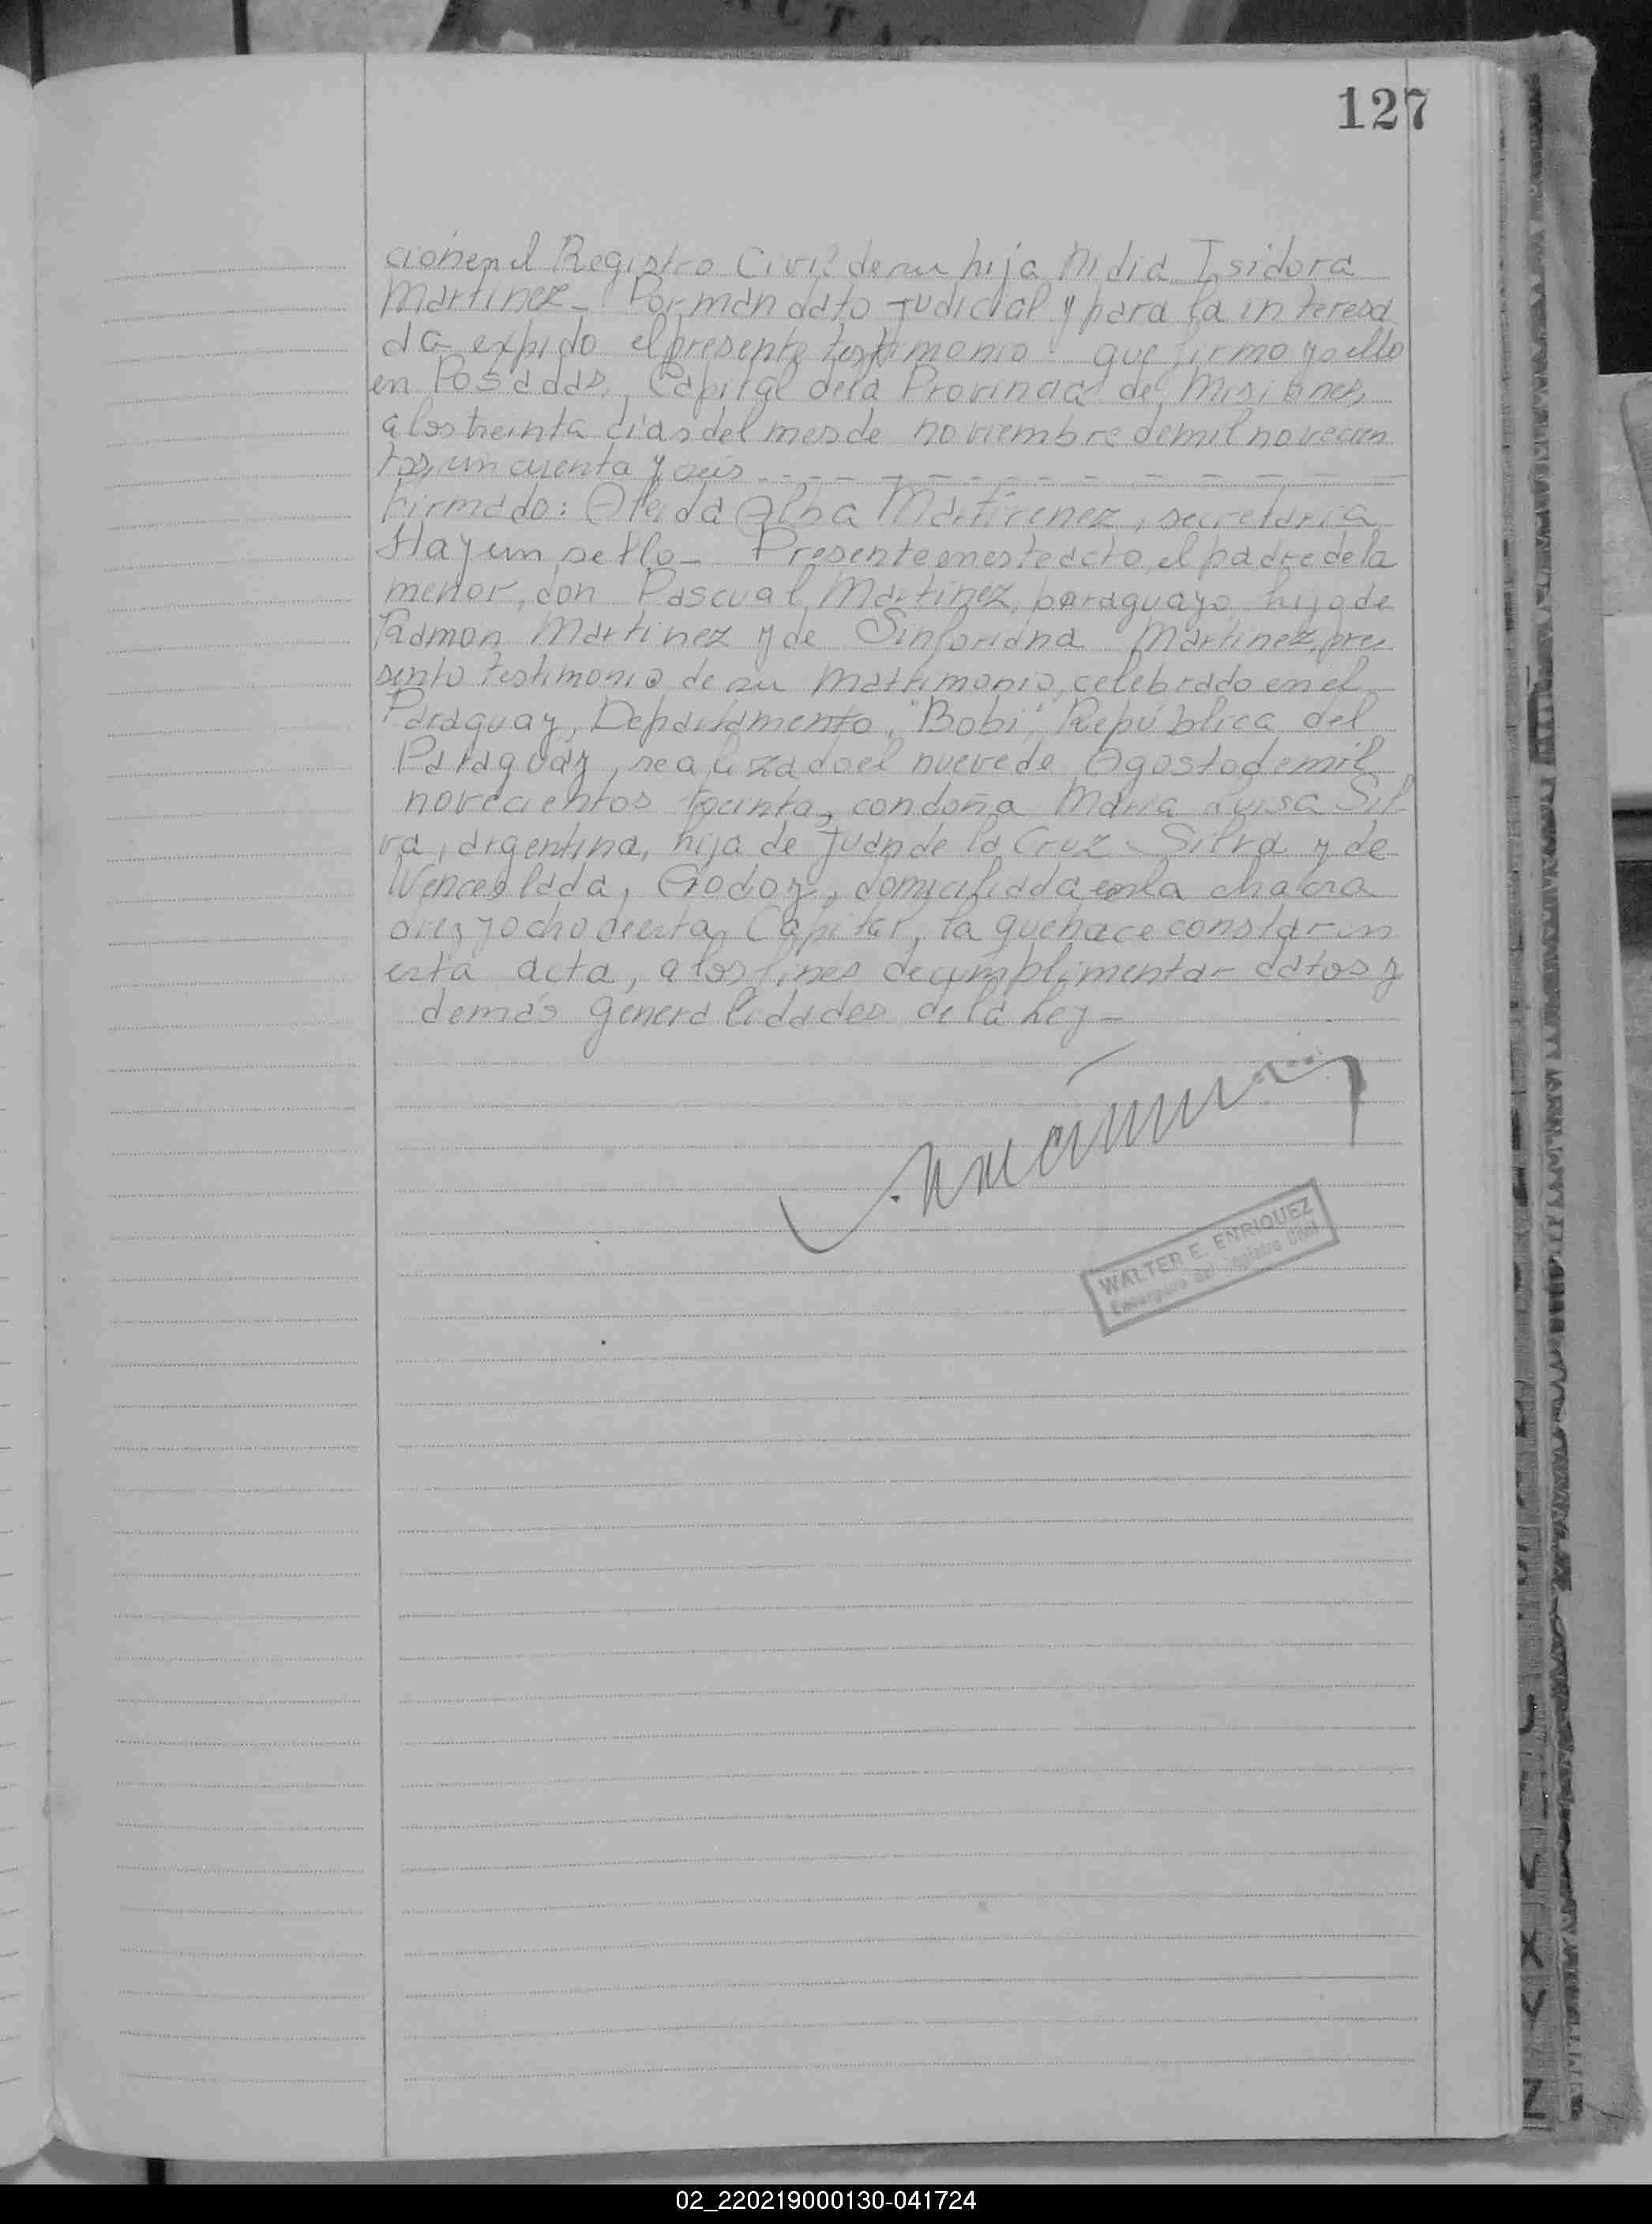 ACTAS
127
ción en el Registro Civil de su hija Nidia Isidora
Martinez_ Por mandato judicial y para la interesa
da expido el presente testimonio que firmo y sello
en Posadas, Capital de la Provincia de Misiones,
a los treinta dias del mes de noviembre de mil novecien
tos, cincuenta y seis
Firmado: Aleida Alba Martirenez, secretaria
Hay un sello_ Presente en este acto, el padre de la
menor, don Pascual Martinez, paraguayo, hijo de
Ramon Martinez y de Sinforiana Martinez, pre
sento testimonio de su matrimonio, celebrado en el
Paraguay, Departamento, "Bobi", República del
Paraguay, realizado el nueve de Agosto de mil
novecientos treinta, con doña Maria Luisa Sil-
va, argentina, hija de Juan de la Cruz Silva y de
Wenceslada, Godoy, domiciliada en la chacra
diez y ocho de esta Capital, la que hace constar en
esta acta, a los fines de cumplimentar datos y
demás generalidades de la Ley_
WALTER E. ENRIQUEZ
Encargado del Registro Civil
02_220219000130-041724